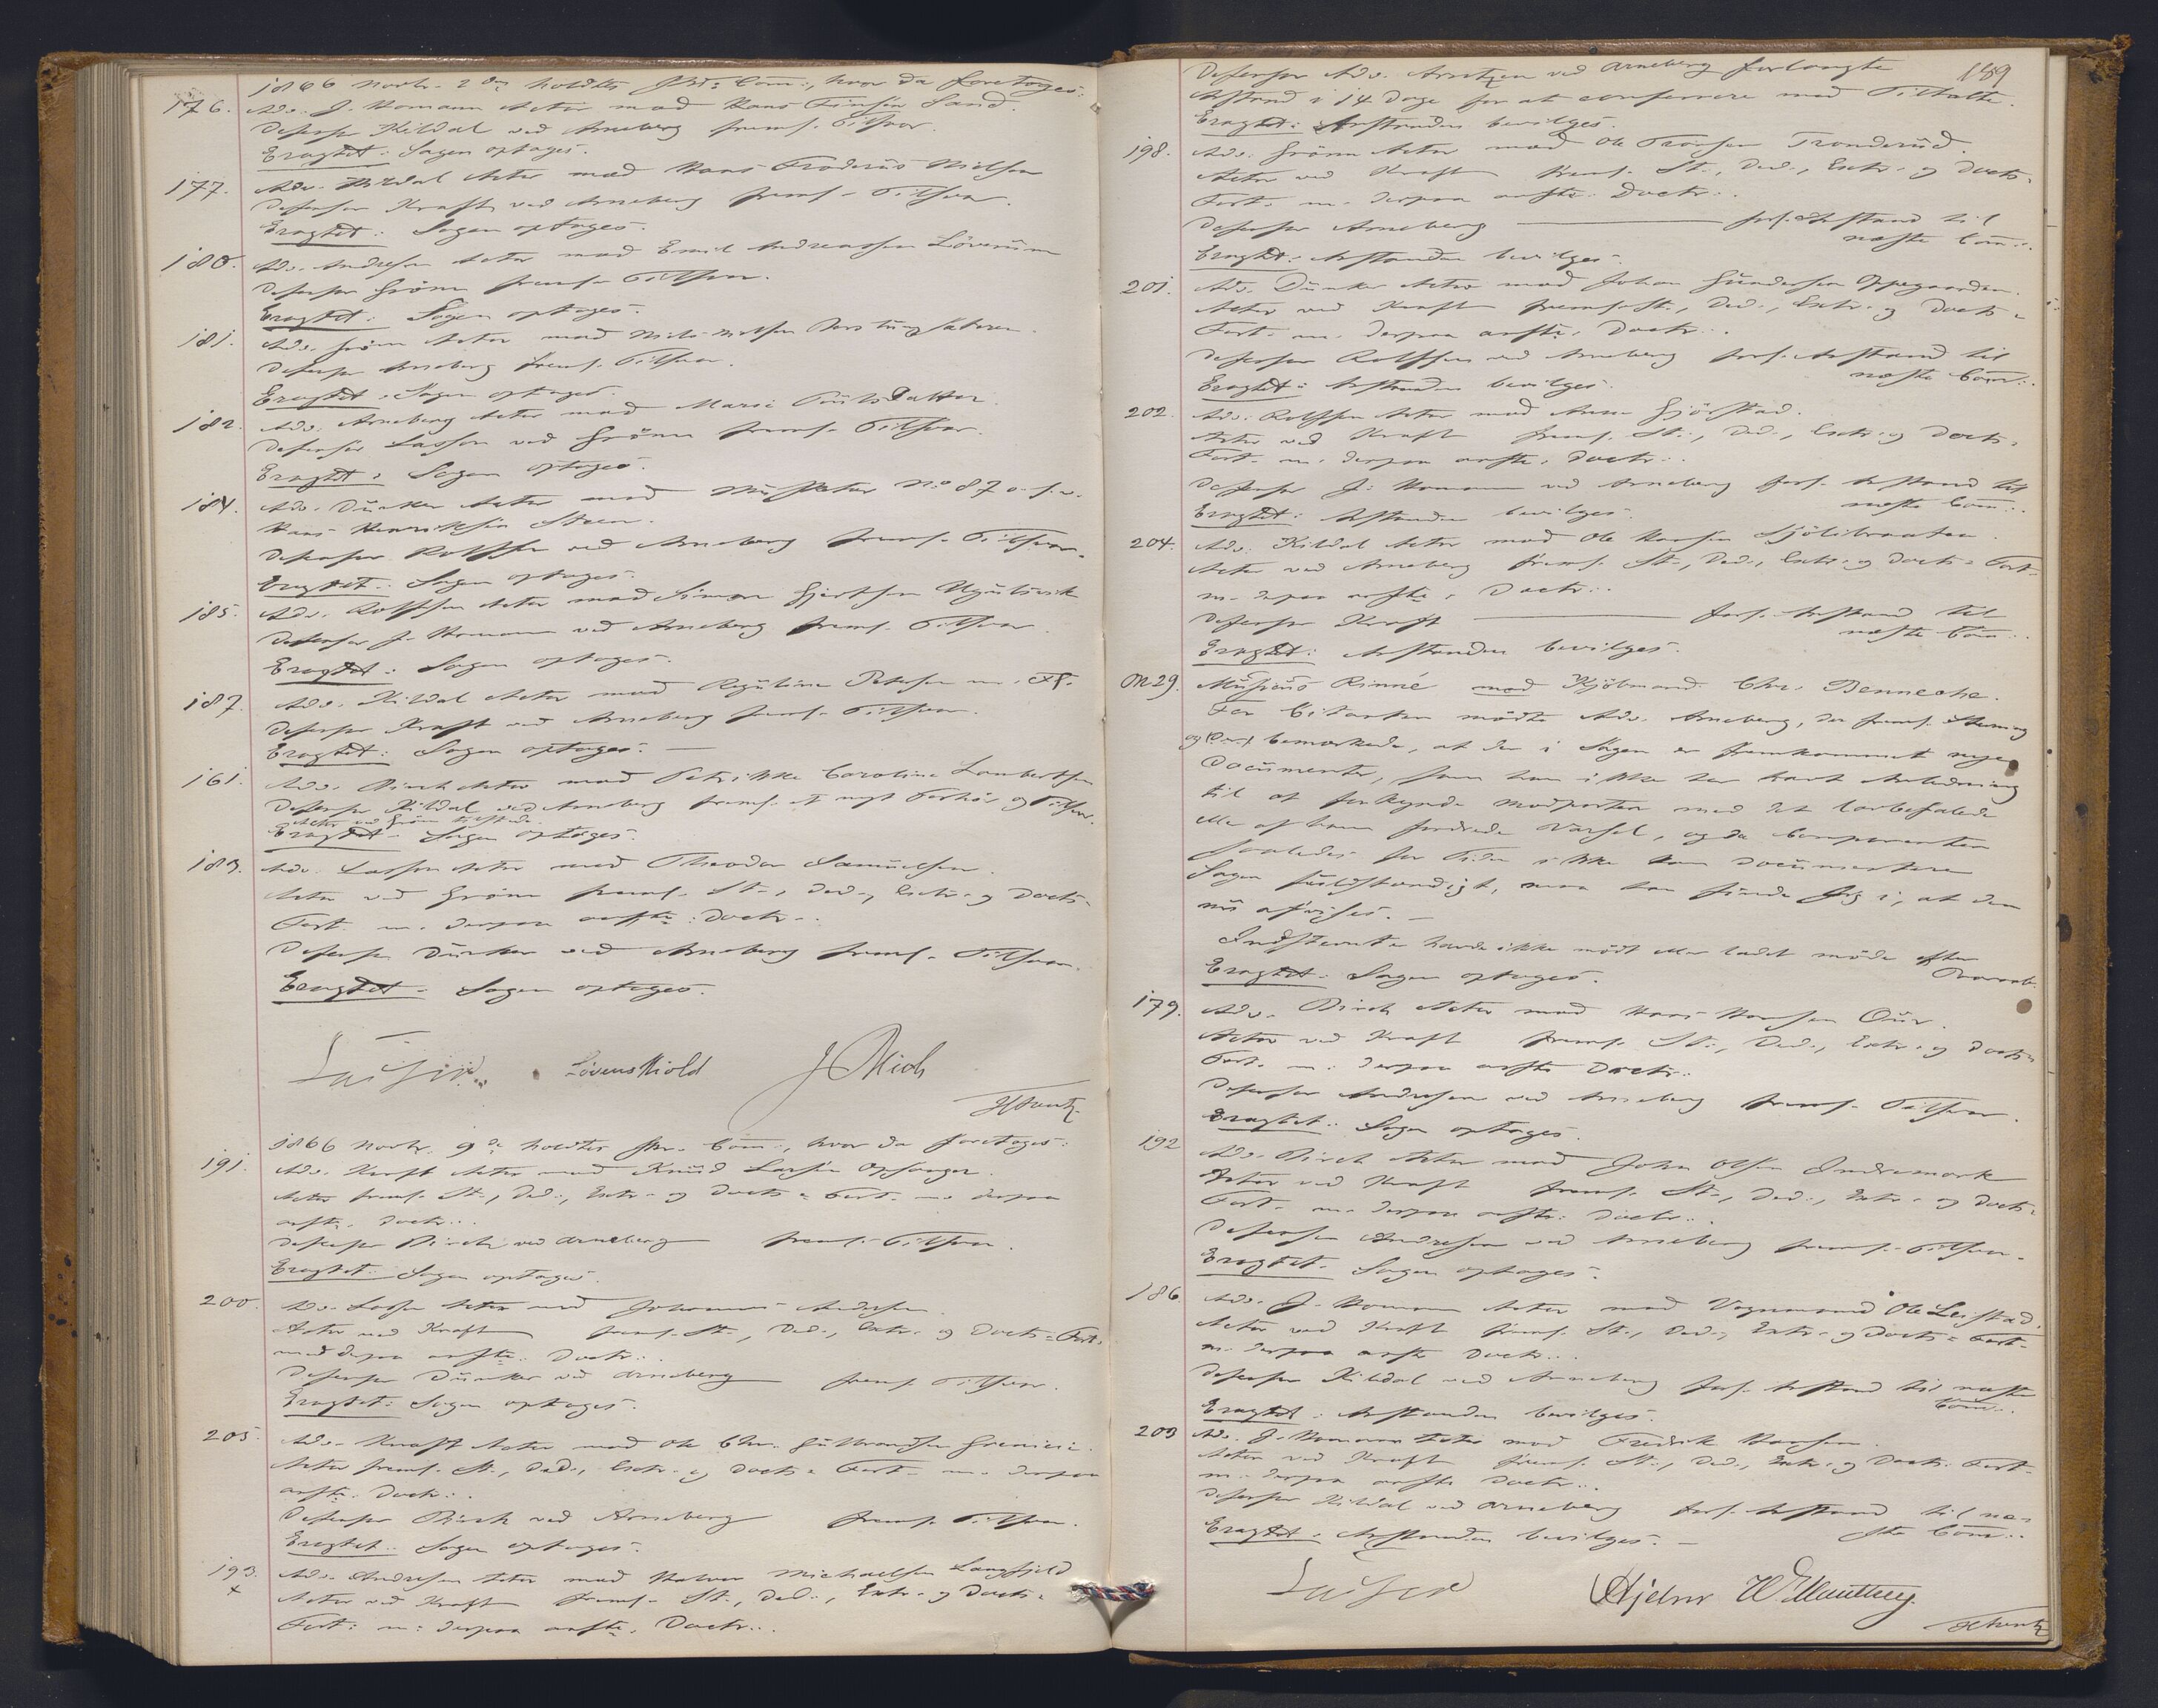 1866 Novbr. 2den holdtes Præ: Com:, hvor da foretoges:
176. Adv. J. Homann Actor mod Hans Simsen Sand.
Defensor Kildal ved Arneberg freml. Tilsvar.
Eragtet: Sagen optages.
177. Adv. Kildal Actor mod Hans Frederus Nielsen
Defensor Kraft ved Arneberg freml. Tilsvar.
Eragtet: Sagen optages.
180. Adv. Andresen Actor mod Emil Andreassen Löverum
Defensor Grönn freml. Tilsvar.
Eragtet: Sagen optages.
181. Adv. Grönn Actor mod Nils Nilsen
Defensor Arneberg freml. Tilsvar.
Eragtet: Sagen optages.
182. Adv. Arneberg Actor mod Marie Pouls Datter.
Defensor Lasson ved Grönn freml. Tilsvar.
Eragtet: Sagen optages.
184. Adv. Dunker Actor mod Musketer No 87 o.s.v.
Hans Henriksen Steen.
Defensor Rolfsen ved Arneberg freml. Tilsvar.
Eragtet: Sagen optages.
185. Adv. Rolfsen Actor mod Simon Gjertsen
Defensor J. Homann ved Arneberg freml. Tilsvar.
Eragtet: Sagen optages.
187. Adv. Kildal Actor mod Regitine Petersen m. Fl.
Defensor Kraft ved Arneberg freml. Tilsvar.
Eragtet: Sagen optages.
161. Adv. Birch Actor mod Petrikke Caroline Lambertsen
Defensor Kildal ved Arneberg freml. et nyt Forhör og Tilsvar.
Actor ved Grönn tilstede.
Eragtet: Sagen optages.
183. Adv. Lasson Actor mod Theodor Samuelsen.
Actor ved Grönn freml. St., Ded., Extr. og Docts.
Fort. m. derpaa anftr: Doctr.
Defensor Dunker ved Arneberg freml. Tilsvar.
Eragtet: Sagen optages.
Lövenskiold J Mich
1866 Novbr. 9de holdtes Præ. Com:, hvor da foretoges:
191. Adv. Kraft Actor mod Knud Larsen Opsanger.
Actor freml. St., Ded., Extr. og Docts. Fort. m. derpaa
anftr. Doctr.
Defensor Birch ved Arneberg freml. Tilsvar.
Eragtet: Sagen optages.
200. Adv. Lasson Actor mod Johannes Andersen.
Actor ved Kraft freml. St., Ded., Extr. og Docts. Fort.
med derpaa anftr: Doctr.
Defensor Dunker ved Arneberg freml. Tilsvar.
Eragtet: Sagen optages.
205. Adv. Kraft Actor mod Ole Chr. Gulbrandsen Grenicie.
Actor freml. St., Ded., Extr. og Docts. Fort. m. derpaa
anftr: Doctr.
Defensor Birch ved Arneberg freml. Tilsvar.
Eragtet: Sagen optages.
193. Adv. Andresen Actor mod Halvor Michaelsen Langfjeld
x Actor ved Kraft freml. St., Ded., Extr. og Docts.
Fort. m. derpaa anftr. Doctr.
189
Defensor Adv. Arntzen ved Arneberg forlangte
Anstand i 14 Dage for at conferere med Tiltalte.
Eragtet: Anstanden bevilges.
198. Adv. Grönn Actor mod Ole Tronsen Tronderud.
Actor ved Kraft freml. St., Ded., Extr. og Docts.
Fort. m. derpaa anftr. Doctr.
Defensor Arneberg forl. Anstand til
næste Com:
Eragtet: Anstanden bevilges.
201. Adv. Dunker Actor mod Johan Gundersen Oppegaarden.
Actor ved Kraft freml. St., Ded., Extr. og Docts.
Fort. m. derpaa anftr. Doctr.
Defensor Rolfsen ved Arneberg forl. Anstand til
næste Com:
Eragtet: Anstanden bevilges.
202. Adv. Rolfsen Actor mod Anne Gjörstad.
Actor ved Kraft freml. St., Ded., Extr. og Docts.
Fort. m. derpaa anftr. Doctr.
Defensor J. Homann ved Arneberg forl. Anstand til
næste Com:
Eragtet: Anstanden bevilges.
204. Adv. Kildal Actor mod Ole Hansen Sjölibraaten
Actor ved Arneberg freml. St., Ded., Extr. og Docts. Fort.
m. derpaa anftr. Doctr.
Defensor Kraft forl. Anstand til
næste Com:
Eragtet: Anstanden bevilges.
M 29. Musicus Rinné mod Kjöbmand Chr. Benneche.
For Citanten mödte Adv. Arneberg, der freml. Stevning
og bemærkede, at der i Sagen er fremkommet nogen
Documenter, som han ikke har havt Anledning
til at forkynde Modparten med det lovbefalede
eller af ham fordrede Varsel, og da Comparenten
saaledes for Tiden ikke kan documentere
Sagen fuldstændigt, maa han finde sig i, at den
nu afvises.
Indstevnte havde ikke mödt eller ladet möde efter
Paaraab.
Eragtet: Sagen optages.
179. Adv. Birch Actor mod Hans Hansen Our.
Actor ved Kraft freml. St., Ded., Extr. og Docts.
Fort. m. derpaa anftr Doctr.
Defensor Andresen ved Arneberg freml. Tilsvar.
Eragtet: Sagen optages.
192 Adv. Birch Actor mod John Olsen Indremork
Actor ved Kraft freml. St., Ded., Extr. og Docts.
Fort. m. derpaa anftr. Doctr.
Defensor Andresen ved Arneberg freml. Tilsvar.
Eragtet. Sagen optages.
186. Adv. J. Homann Actor mod Vognmand Ole Leistad.
Actor ved Kraft freml. St., Ded., Extr. og Docts. Fort.
m. derpaa anftr Doctr.
Defensor Kildal ved Arneberg forl. Anstand til næste
Com:
Eragtet: Anstanden bevilges.
203 Adv. J. Homann Actor mod Fredrik Hansen.
Actor ved Kraft freml. St., Ded., Extr. og Docts. Fort.
m. derpaa anftr Doctr.
Defensor Kildal ved Arneberg forl. Anstand til næ-
ste Com:
Eragtet: Anstanden bevilges.
Hjelm